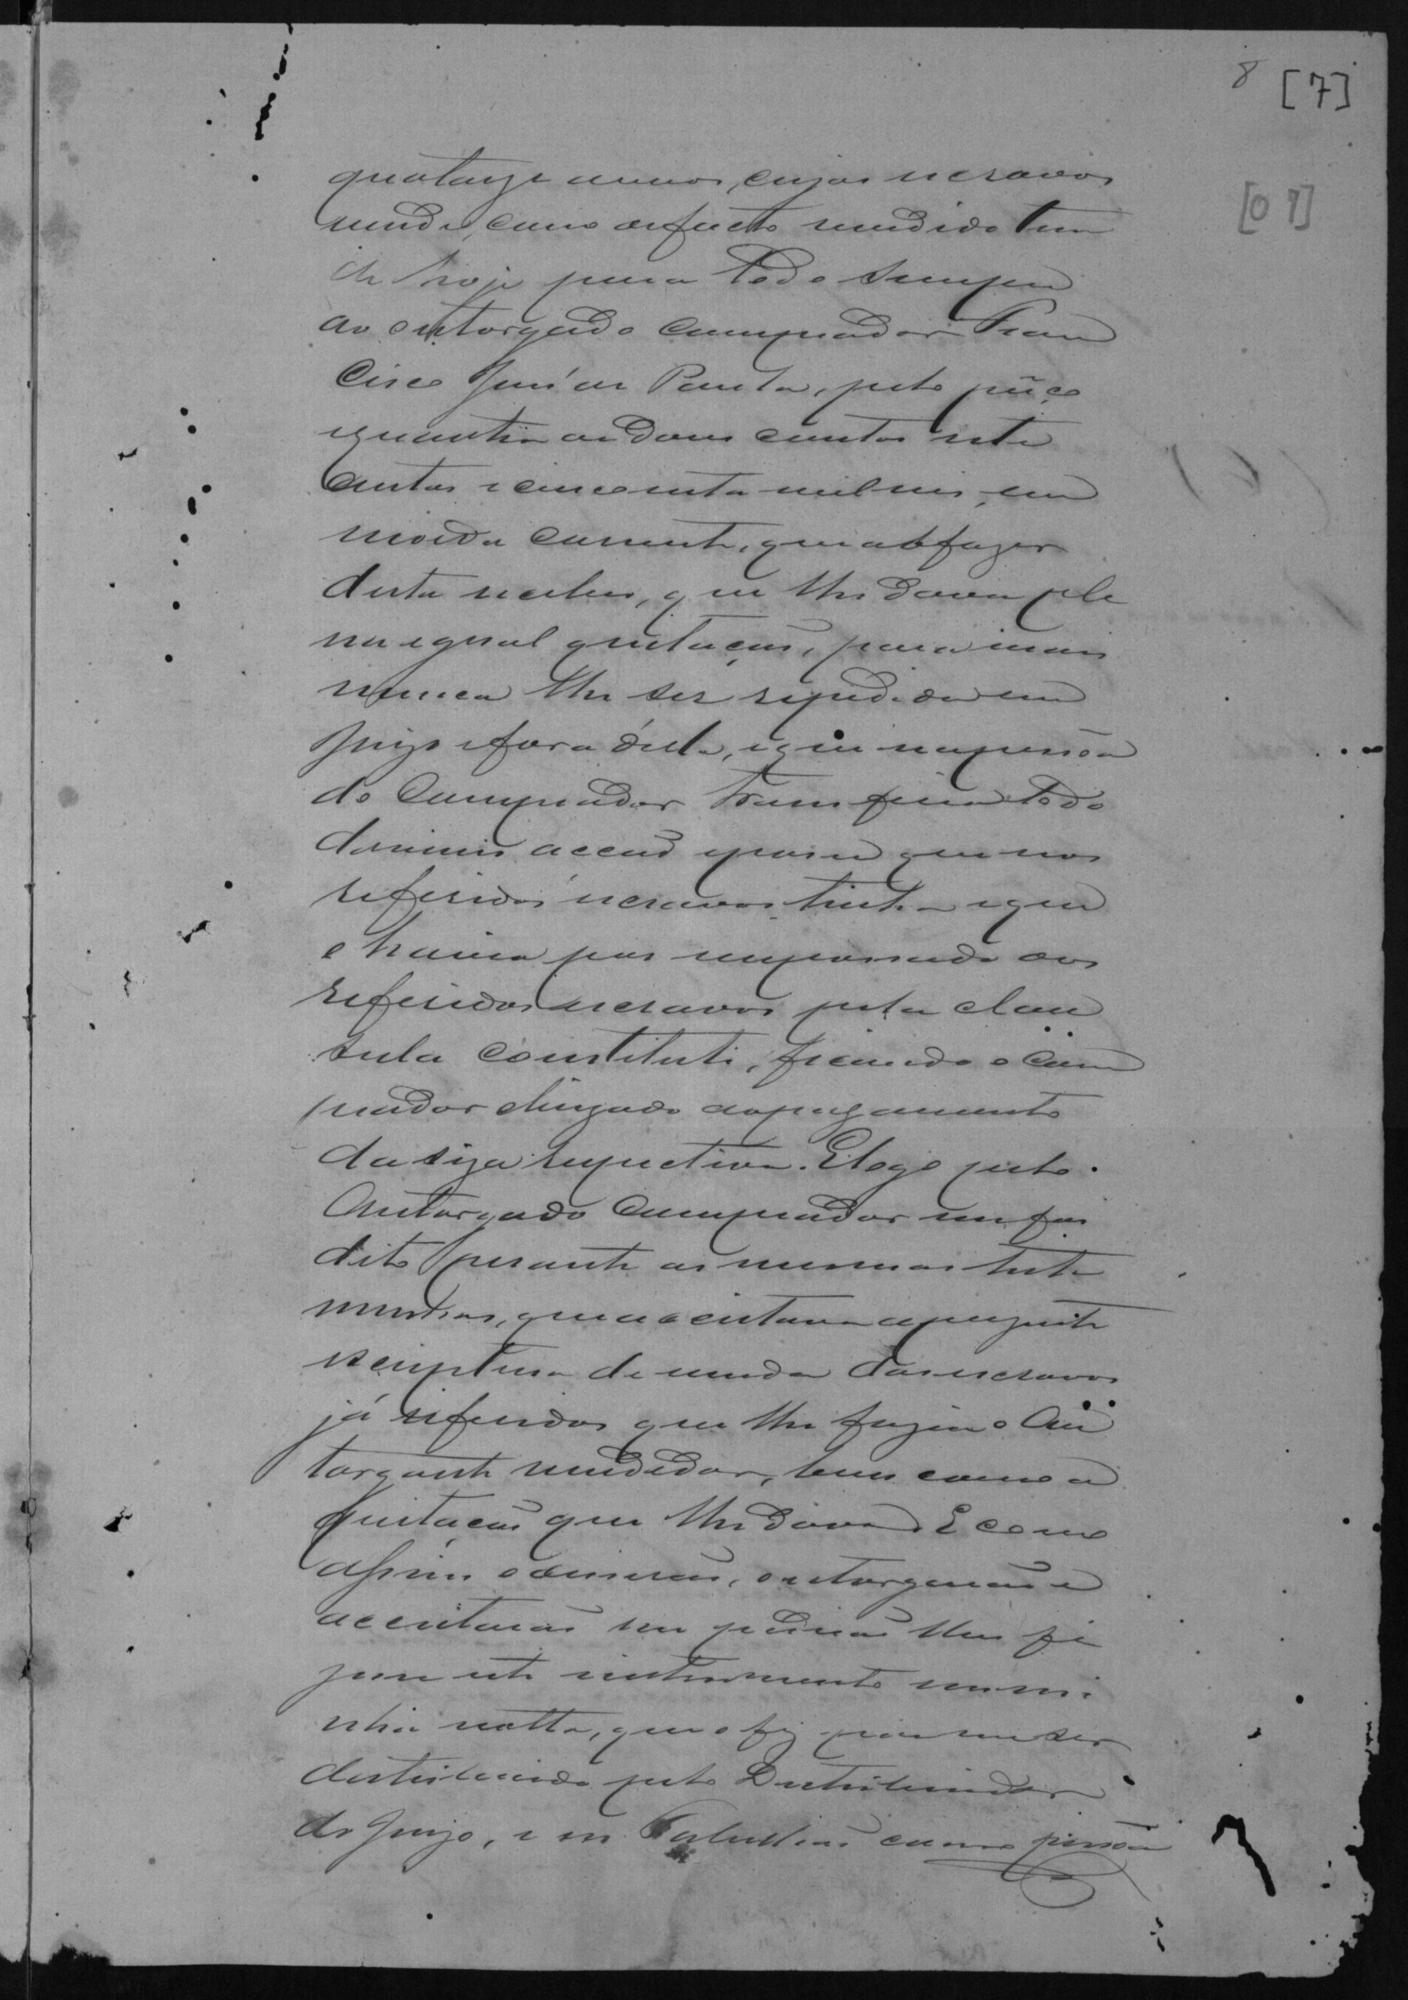 8 [7]
[07]
quatorze annos, cujos escravos
vende, como defacto vendido tem
de hoje para todo sempre
ao outorgado comprador Fran
cisco José de Paula, pelo preço
equantia de dous contos sete
centos e cincoenta mil reis, em
moeda corrente, que ao fazer
desta recebeu, que lhe dava ple
na egeral quitação, para mais
nunca lhe ser repedida em
Juizo efora délle, e que napessôa
do Comprador transferia todo
dominio acção eposse que nos
referidos escravos tinha e que
o havia por empossado dos
referidos escravos pela clau
sula constituti, ficando o Com
prador obrigado ao pagamento
da siza respectiva. E logo pelo
Outorgado Comprador me foi
dito perante as mesmas teste
munhas, que acceitava a prezente
escriptura de venda dos escravos
já referidos que lhe fazia o Ou
torgante vendedor, bem como a
quitação que lhe dava. E como
assim o disserão, outorgarão e
acceitarão me pedirão lhes fi
zesse este instrumento em mi
nha notta, que o fiz por me ser
destribuida pelo Destribuidor
do Juizo, e eu Tabellião como pessôa